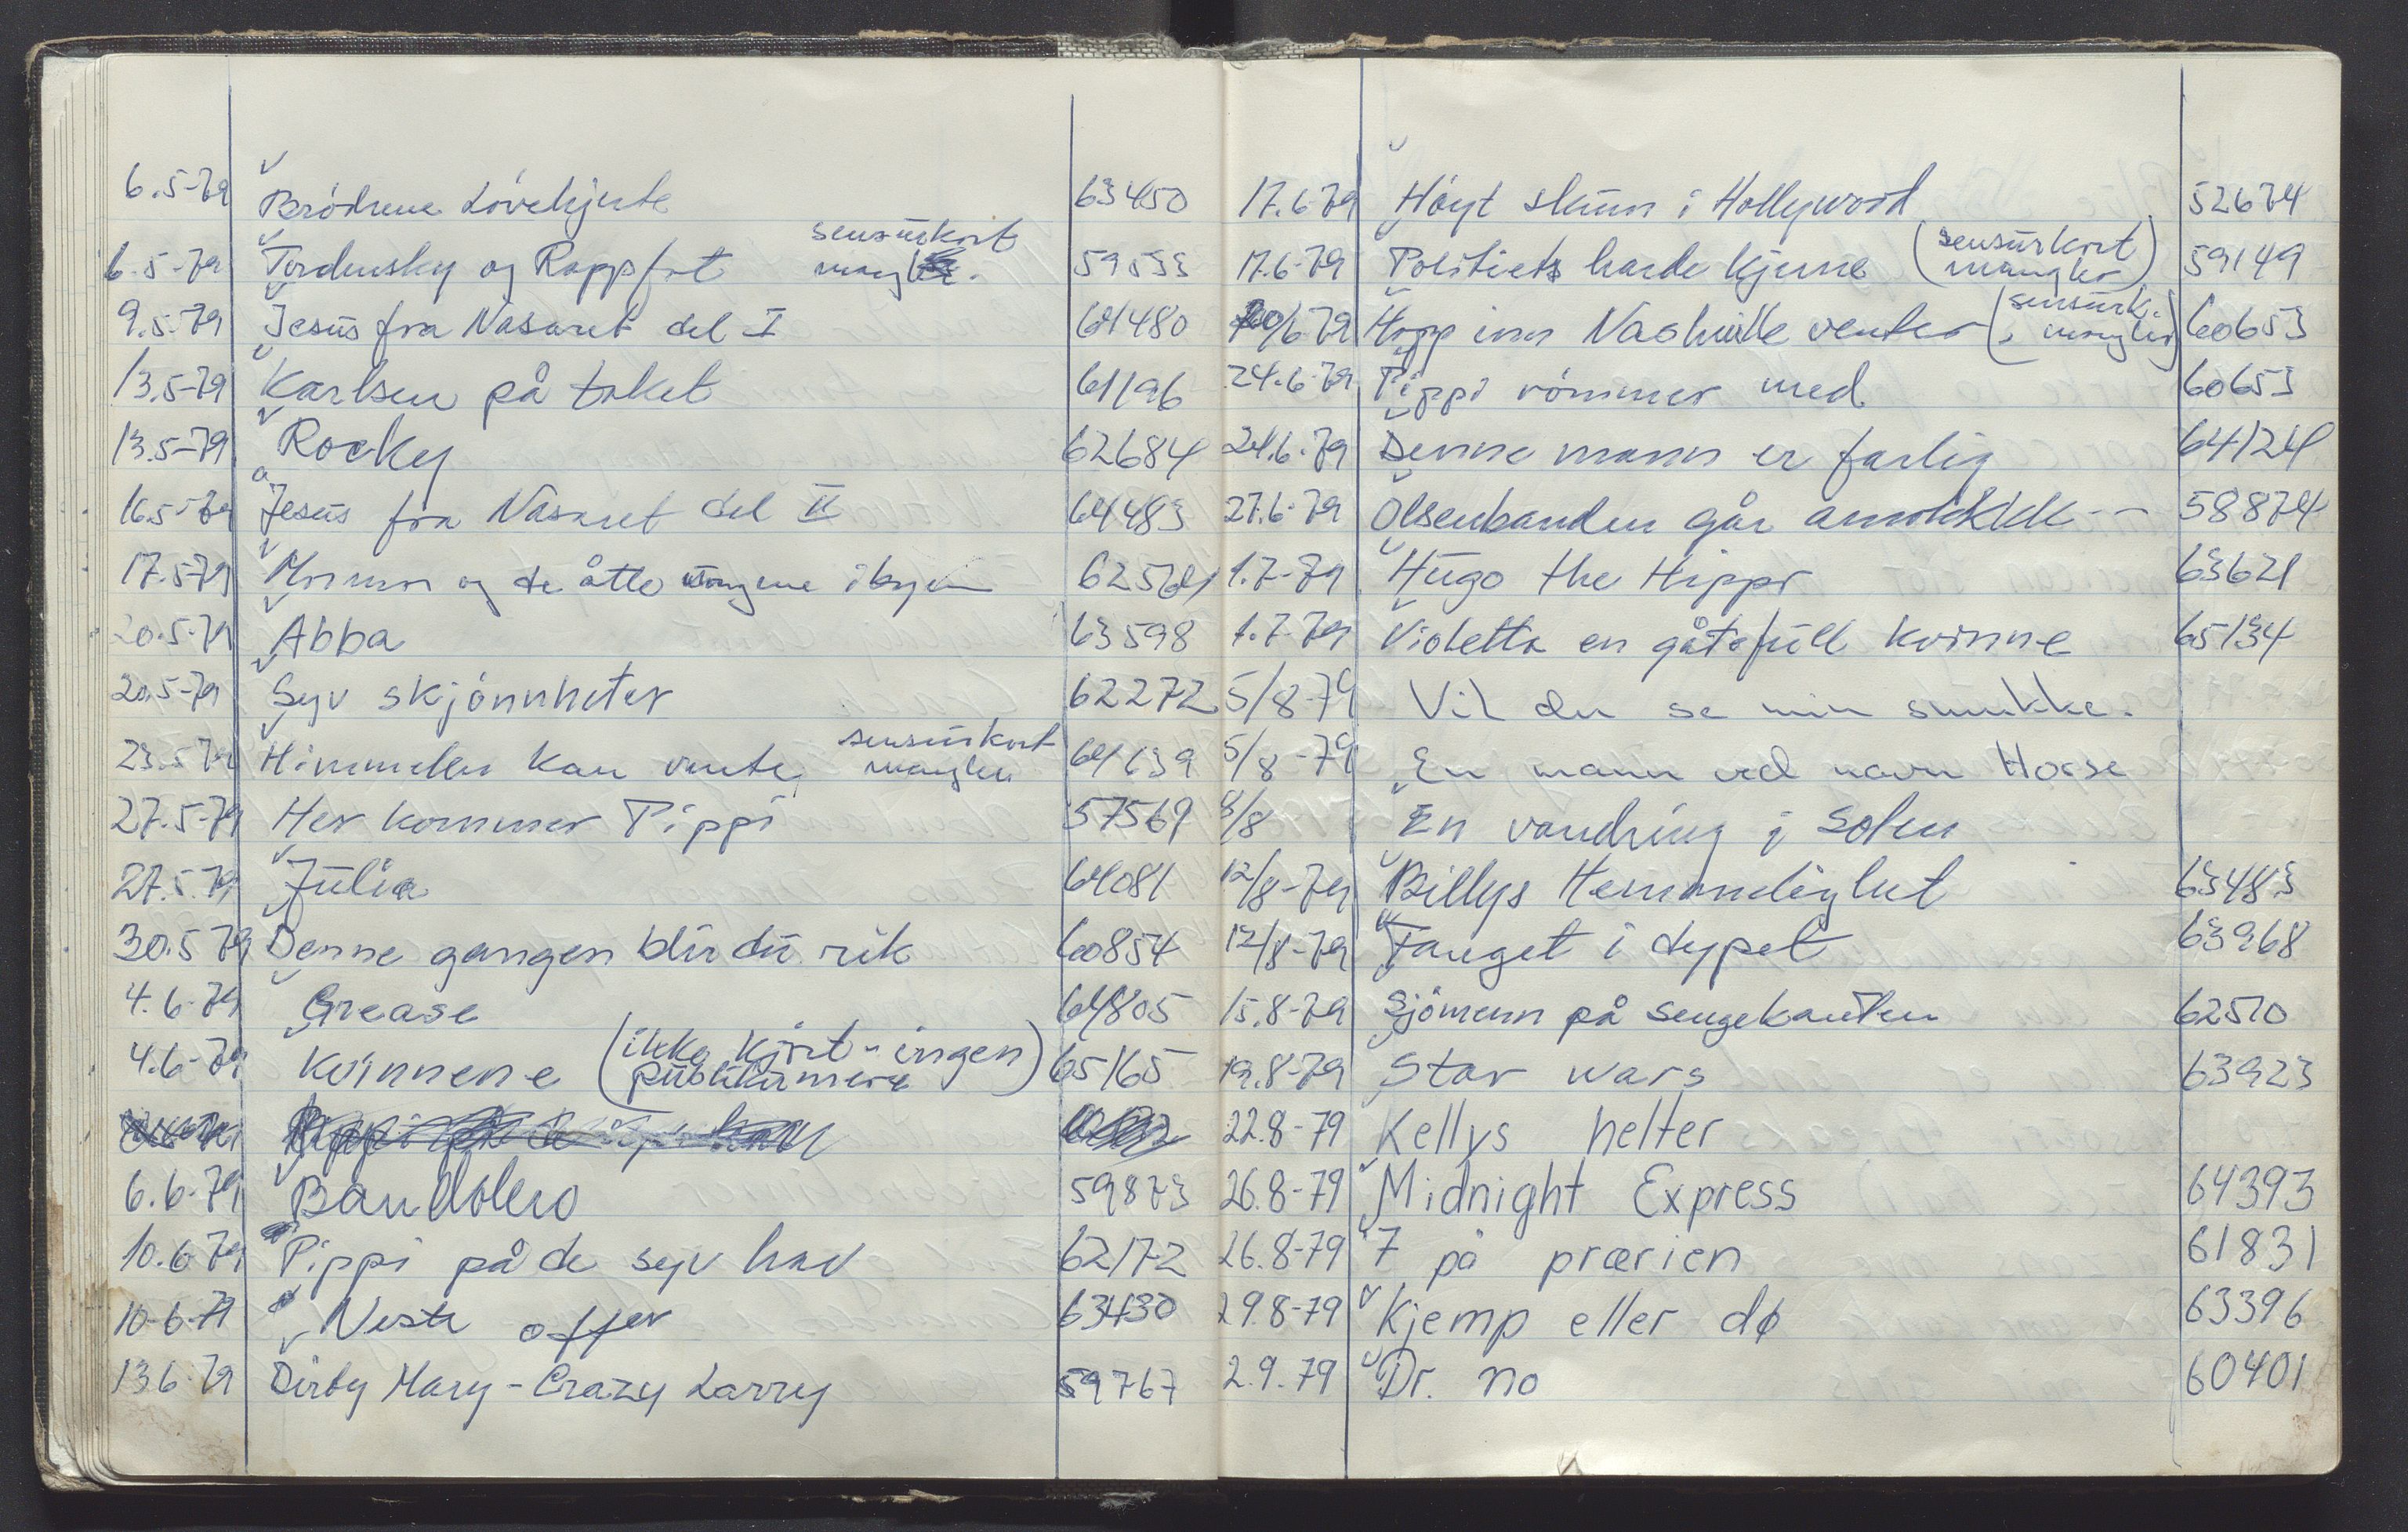 6.5-79 Brödrene Lövehjerte 63450
6.5-79 Tordensky og Rappfot sensurkort mangler. 59533
9.5.79 Jesus fra Nasaret del I 64480
13.5-79 Karlsen på taket 61196
13.5-79 Rocky 62684
16.5-79 Jesus fra Nasaret del II 64483
17.5-79 Mormor og de åtte ungene i byen
20.5-79 Abba 63598
20.5-79 Syv skjönnheter 62272
23.5-79 Himmelen kan vente, sensurkort mangler 64639
27.5-79 Her kommer Pippi 57569
27.5.79 Julia 64081
30.5 79 Denne gangen blir du rik 60854
4.6-79 Grease 64805
4.6-79 Kvinnene (ikke kjört - ingen publikumere) 65165
6.6-79 Bandolero 59873
10.6 79 Pippi på de syv hav 62172
10-6-79 Neste offer 63430
13 6-79 Dirty Mary - Crazy Larry 59767
17.6-79 Höyt skum i Hollywood 52674
17.6-79 Politiets harde kjerne (sensurkort mangler) 59149
20/6 79 Hopp inn Nashville venter (sensurk. mangler) 60653
24.6-79 Pippi römmer med 60653
24.6-79 Denne mann er farlig 64124
27.6-79 Olsenbanden går amokkkk -- 58874
1.7-79 Hugo the Hippo 63621
1.7-79 Violetta en gåtefull kvinne 65134
5/8-79 Vil du se min smukke.
5/8-79 En mann ved navn Horse
8/8 En vandring i solen
12/8-79 Billys Hemmelighet 63483
12/8-79 Fanget i dypet 63968
15.8-79 Sjömenn på sengekanten 62510
19.8-79 Star wars 63923
22.8-79 Kellys helter
26.8-79 Midnight Express 64393
26.8-79 7 på prærien 61831
29.8-79 Kjemp eller dø 63396
2.9.79 Dr. no 60401